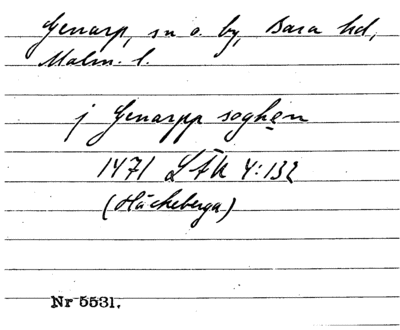 Genarp, sn o. by, Bara hd,
Malm. l.
j Genarpp soghen
1471 LÄU 4:132
(Häckeberga)
Nr 5531.